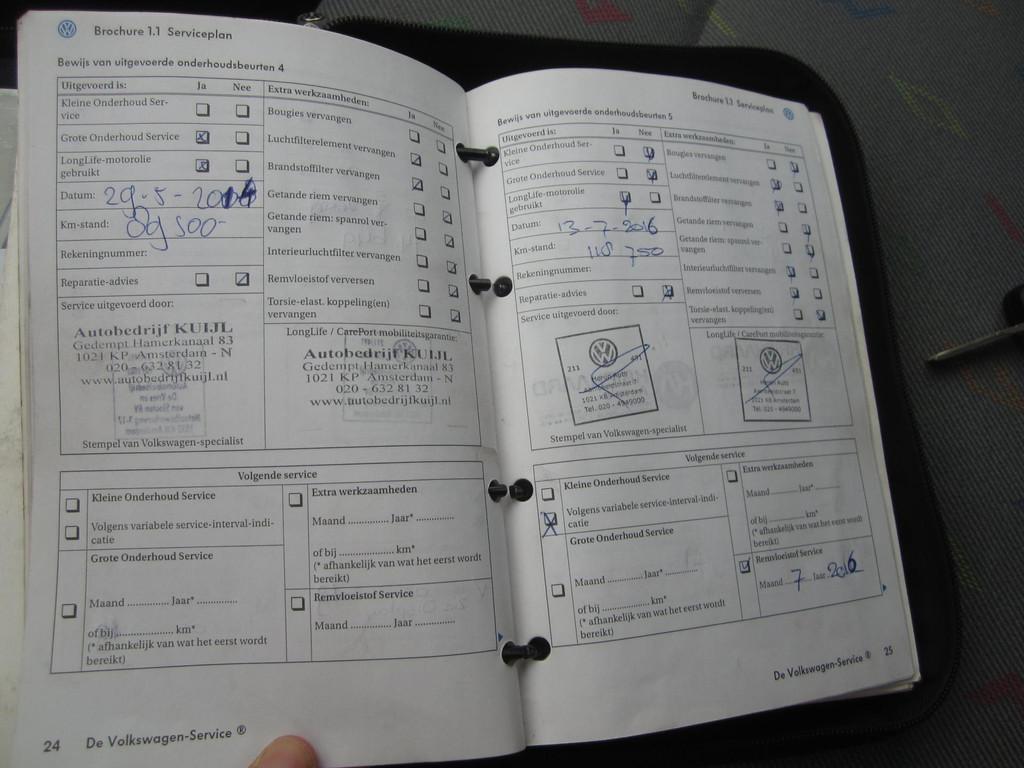 Brochure 1.1 Serviceplan
Bewijs van uitgevoerde onderhoudsbeurten 4
Uitgevoerd is: Ja Nee
Kleine Onderhoud Ser-
vice
Grote Onderhoud Service
LongLife-motorolie
gebruikt
Datum: 29-5-2014
Km-stand: 89 500-
Rekeningnummer:
Reparatie-advies
Service uitgevoerd door:
Autobedrijf KUIJL
Gedempt Hamerkanaal 83
1021 KP - Amsterdam - N
020 - 632 81 32
www.autobedrijfkuijl.nl
Stempel van Volkswagen-specialist
Extra werkzaamheden:
Ja Nee
Bougies vervangen
Luchtfilterelement vervangen
Brandstoffilter vervangen
Getande riem vervangen
Getande riem: spanrol ver-
vangen
Interieurluchtfilter vervangen
Remvloeistof verversen
Torsie-elast. koppeling(en)
vervangen
LongLife / CarePort mobiliteitsgarantie:
Autobedrijf KUIJL
Gedempt Hamerkanaal 83
1021 KP - Amsterdam - N
020 - 632 81 32
www.autobedrijfkuijl.nl
Volgende service
Kleine Onderhoud Service
Volgens variabele service-interval-indi-
catie
Grote Onderhoud Service
Maand .............. Jaar* ..............
of bij .................... km*
(* afhankelijk van wat het eerst wordt
bereikt)
Extra werkzaamheden
Maand .............. Jaar* ..............
of bij .................... km*
(* afhankelijk van wat het eerst wordt
bereikt)
Remvloeistof Service
Maand .............. Jaar ..............
24 De Volkswagen-Service ®
Brochure 1.1 Serviceplan
Bewijs van uitgevoerde onderhoudsbeurten 5
Uitgevoerd is: Ja Nee
Kleine Onderhoud Ser-
vice
Grote Onderhoud Service
LongLife-motorolie
gebruikt
Datum: 13-7-2016
Km-stand: 118 750
Rekeningnummer:
Reparatie-advies
Service uitgevoerd door:
211 491
1021 KB Amsterdam
Tel. 020 - 4949000
Stempel van Volkswagen-specialist
Extra werkzaamheden: Ja Nee
Bougies vervangen
Luchtfilterelement vervangen
Brandstoffilter vervangen
Getande riem vervangen
Getande riem: spanrol ver-
vangen
Interieurluchtfilter vervangen
Remvloeistof verversen
Torsie-elast. koppeling(en)
vervangen
LongLife / CarePort mobiliteitsgarantie:
211 491
1021 KB Amsterdam
Tel. 020 - 4949000
Volgende service
Kleine Onderhoud Service
Volgens variabele service-interval-indi-
catie
Grote Onderhoud Service
Maand .............. Jaar* ..............
of bij .................... km*
(* afhankelijk van wat het eerst wordt
bereikt)
Extra werkzaamheden
Maand .............. Jaar* ..............
of bij .................... km*
(* afhankelijk van wat het eerst wordt
bereikt)
Remvloeistof Service
Maand 7 Jaar 2016
De Volkswagen-Service ® 25